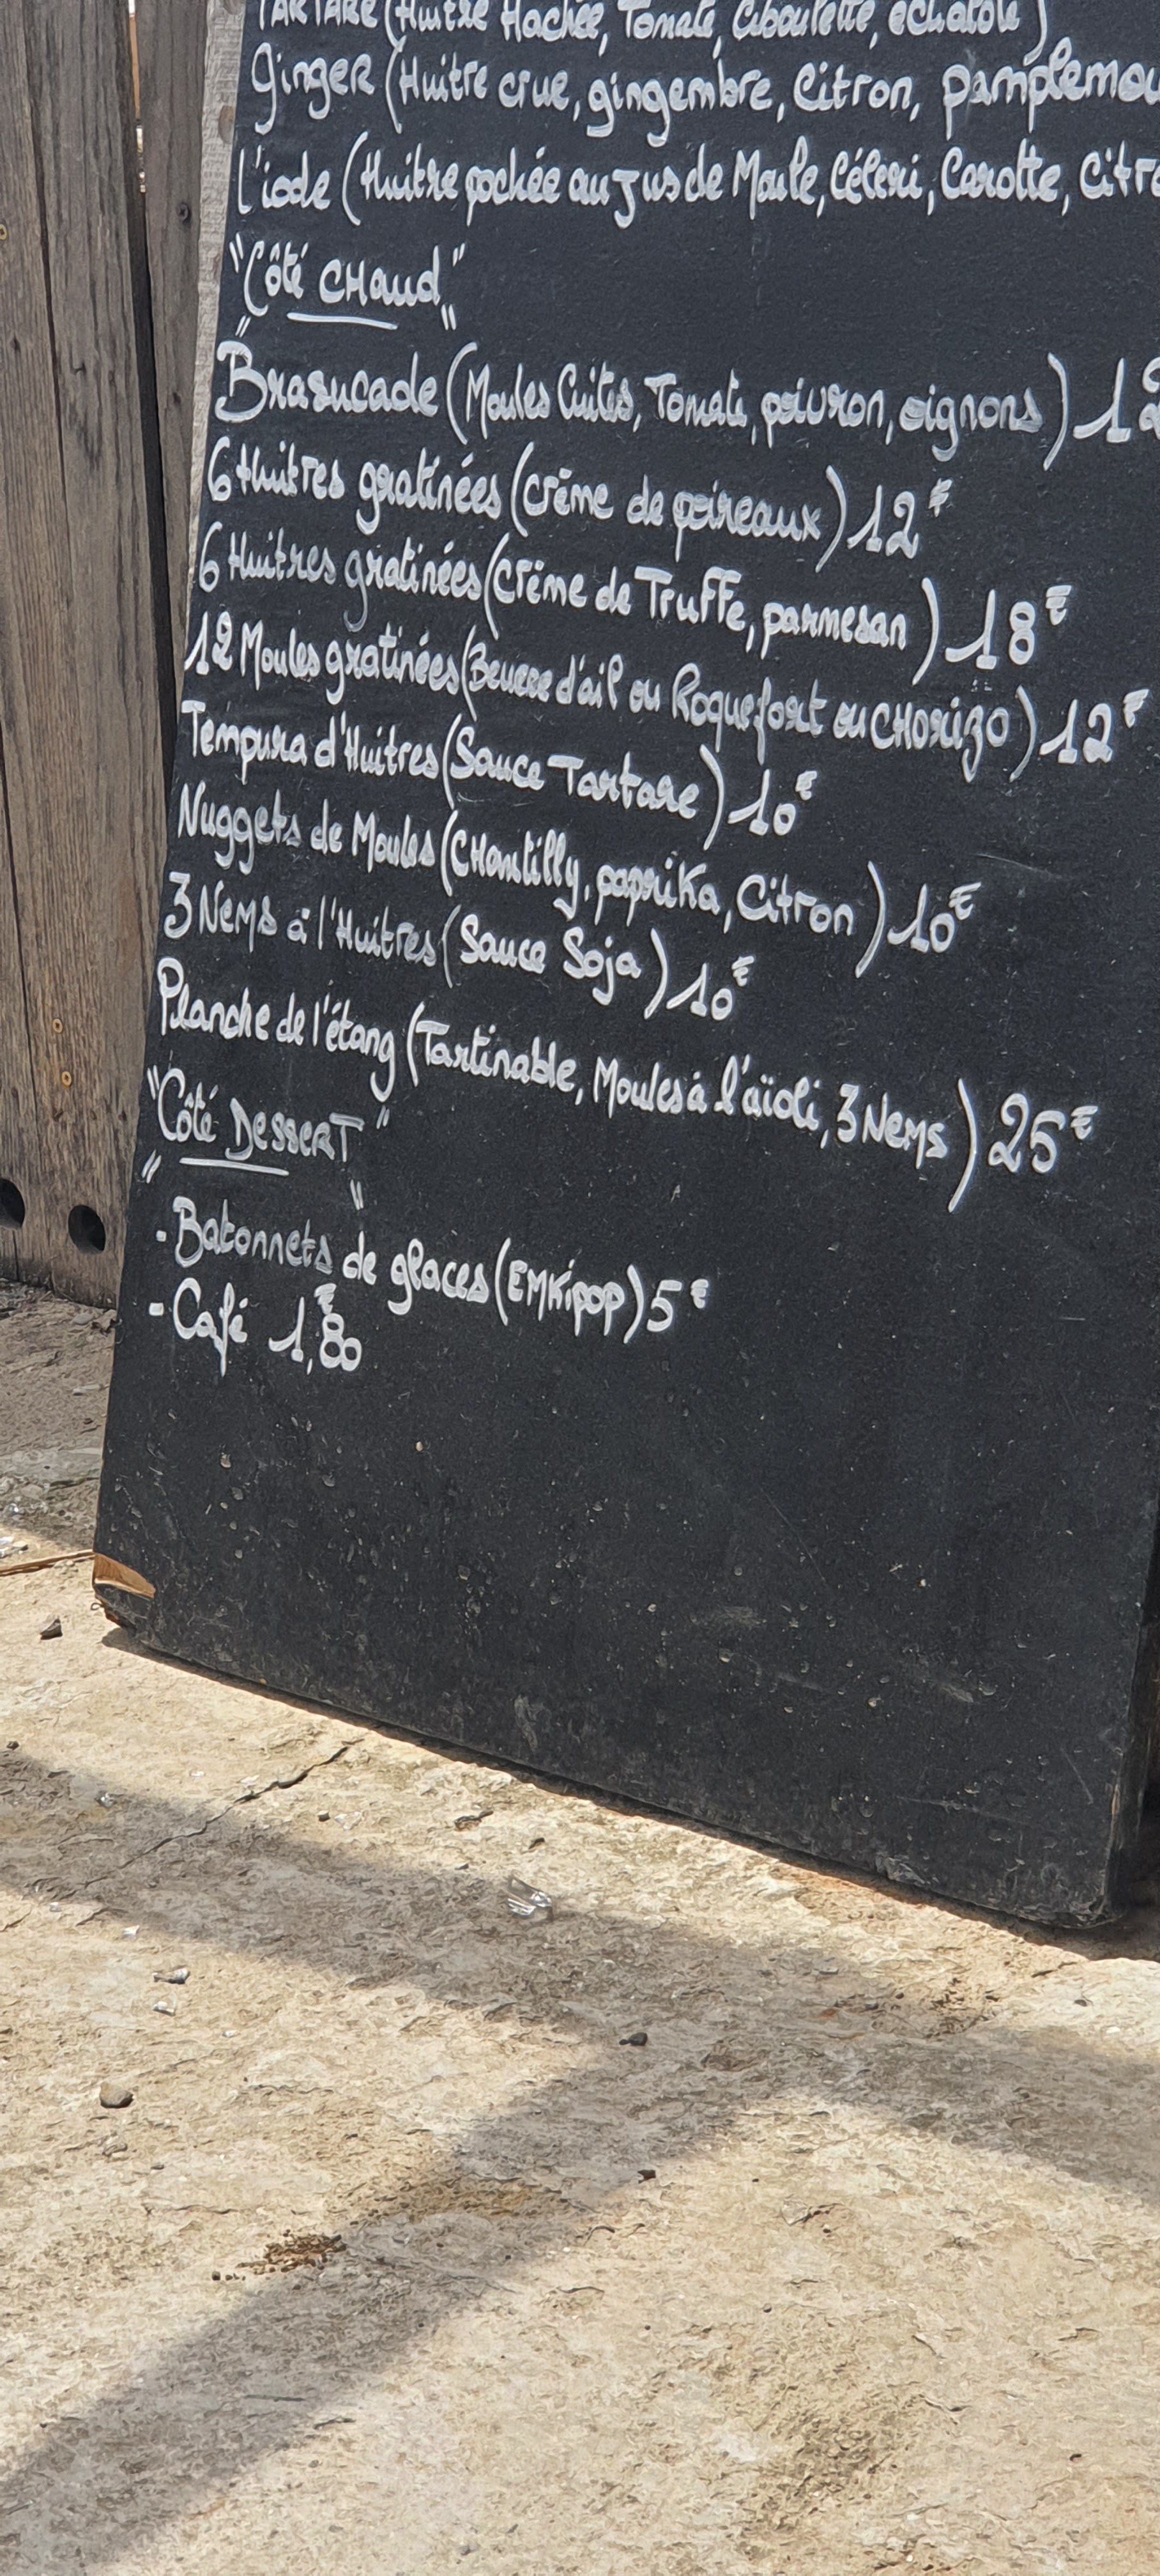 TARTARE (Huitre Hachée, Tomate, Ciboulette, échalote)
Ginger (Huitre crue, gingembre, Citron, pamplemou
L'iode (Huitre pochée au jus de Moule, Céleri, Carotte, Citr
"Côté CHaud"
Brasucade (Moules Cuites, Tomate, poivron, oignons) 12
6 Huitres gratinées (crème de poireaux) 12€
6 Huitres gratinées (crème de Truffe, parmesan) 18€
12 Moules gratinées (Beurre d'ail ou Roquefort ou CHORizo) 12€
Tempura d'Huitres (Sauce Tartare) 10€
Nuggets de Moules (CHantilly, paprika, Citron) 10€
3 Nems à l'Huitres (Sauce Soja) 10€
Planche de l'étang (Tartinable, Moules à l'aïoli, 3 Nems) 25€
"Côté DesseRT"
- Batonnets de glaces (EMKipop) 5€
- Café 1,€80